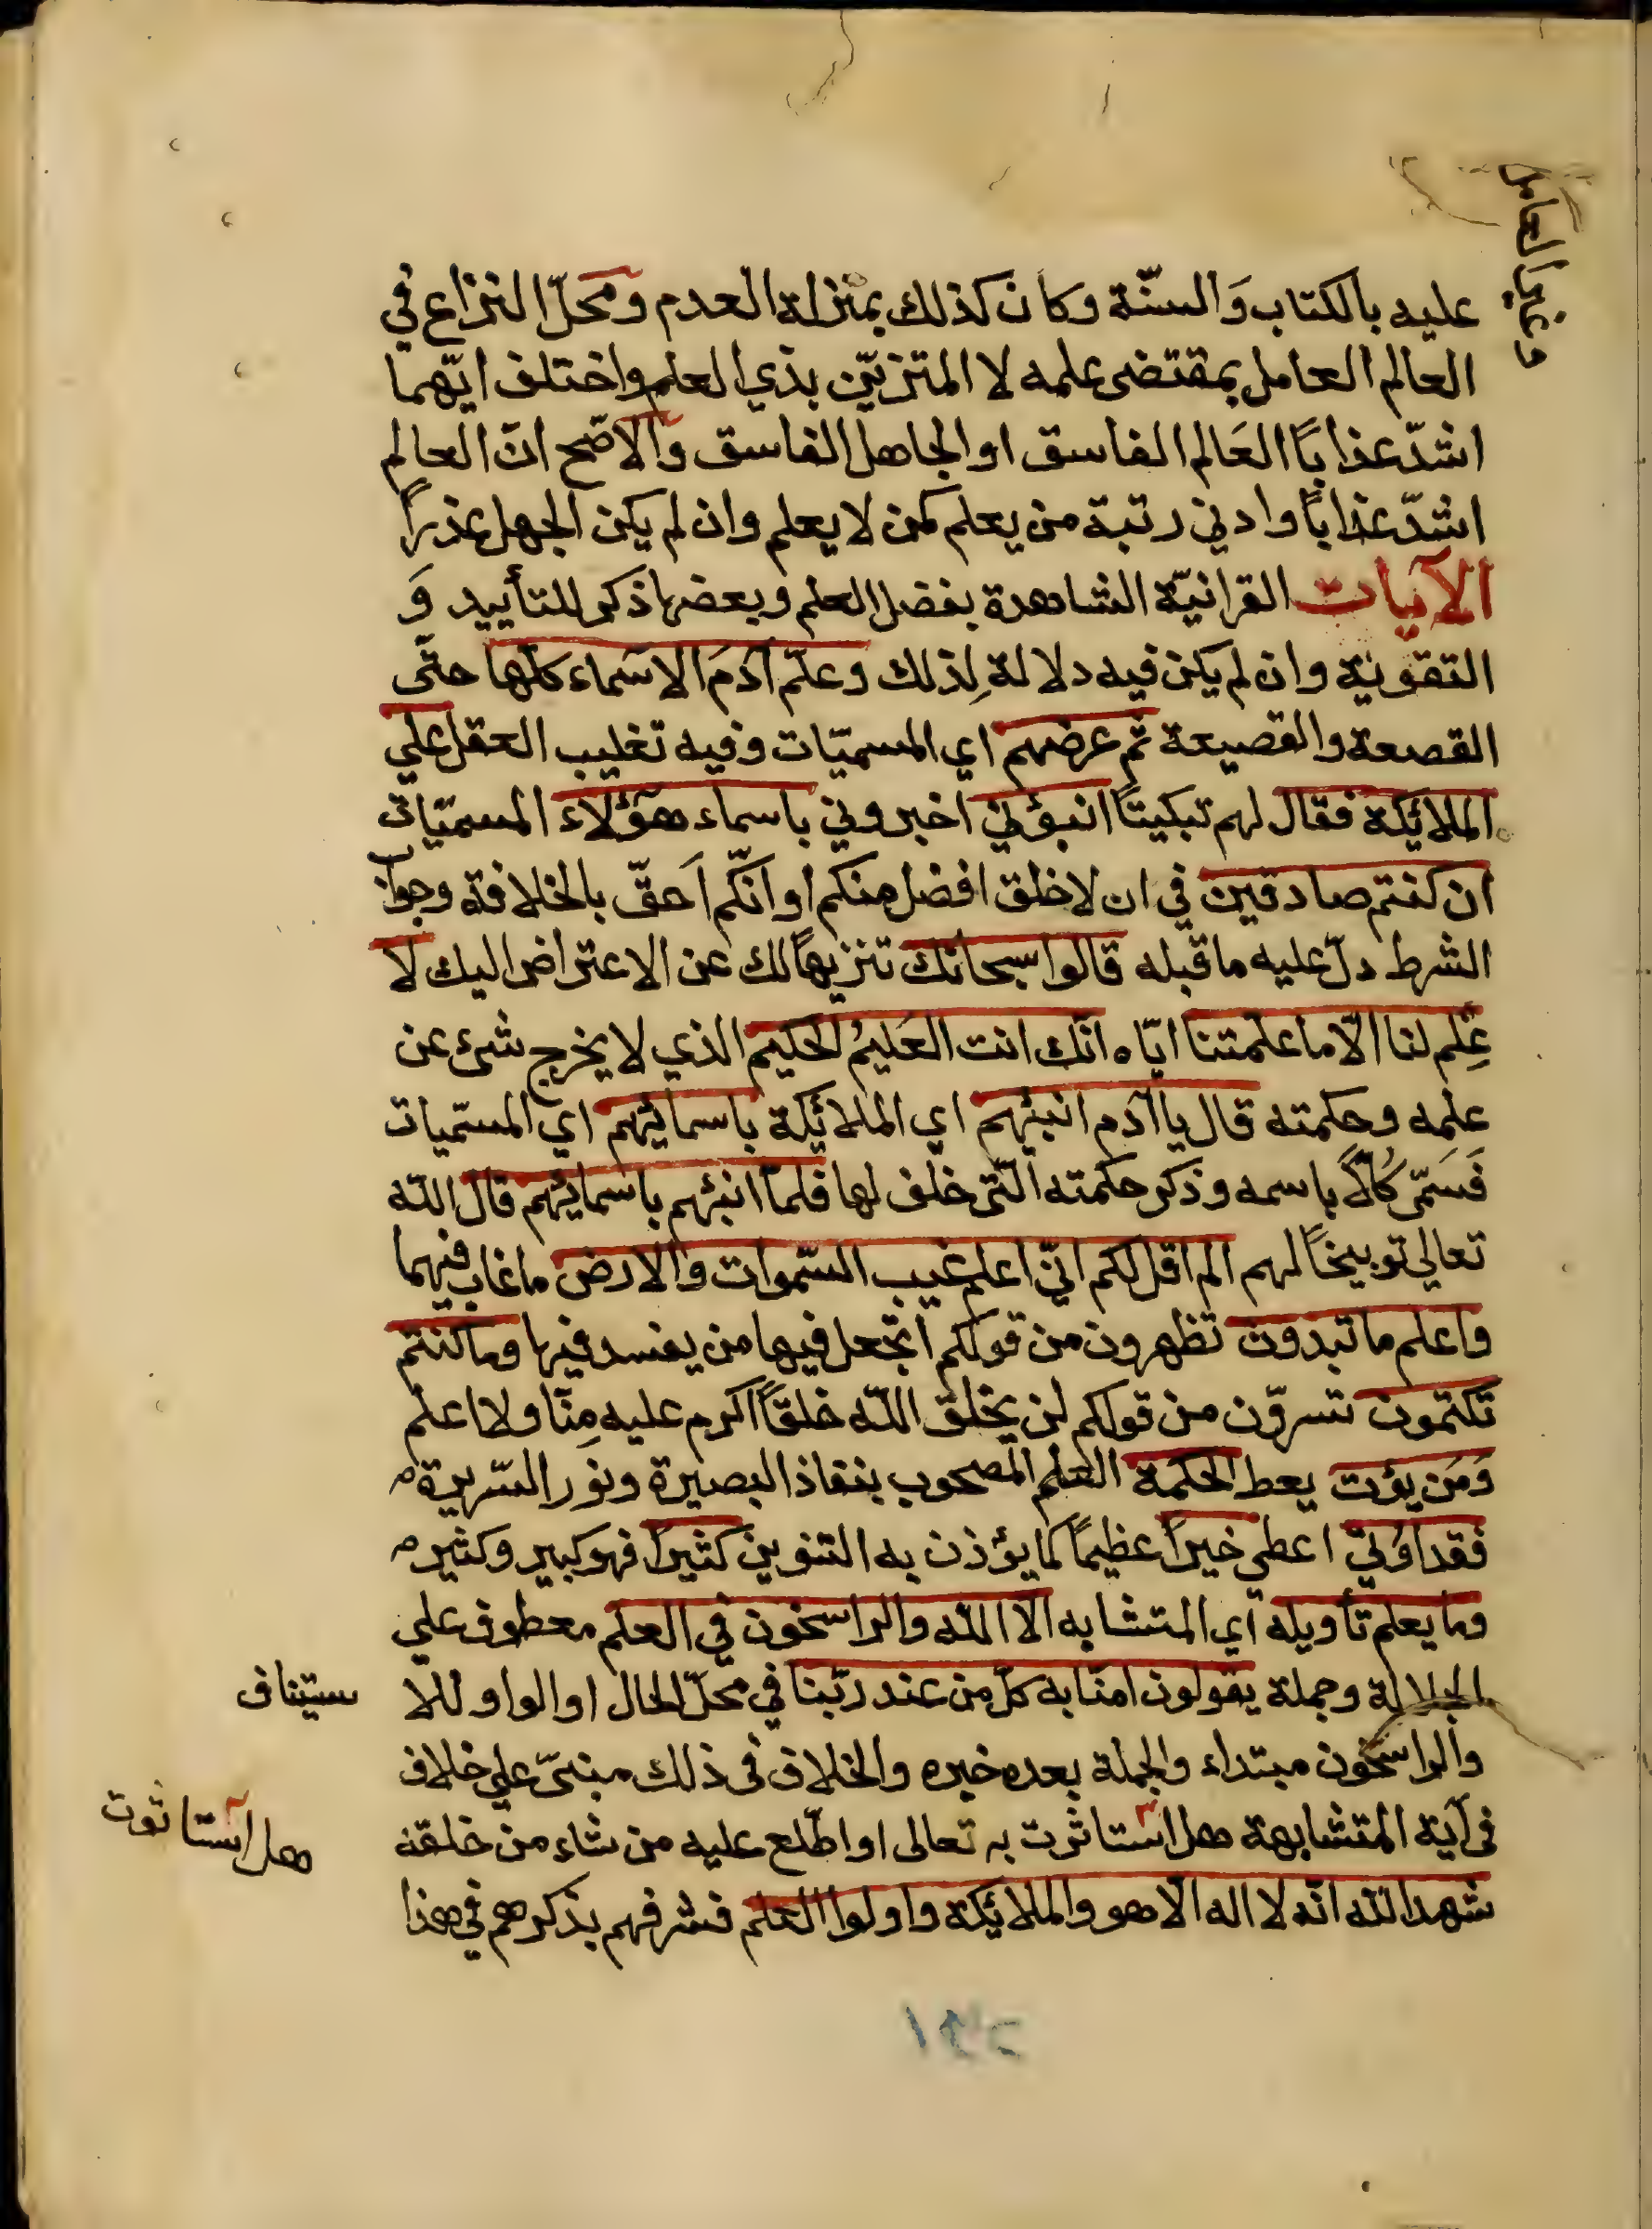 وغير العامل
عليه بالكتاب وَالسنّة وكان كذلك بمنزلة العدم ومحلّ النزاع في
العالم العامل بمقتضى علمه لا المتزيّن بذي العلم واختلف ايّهما
اشدّ عذابًا العَالم الفاسق او الجاهل الفاسق والاصّح انّ العالم
اشدّ عذابًا وادني رتبة من يعلم كمن لا يعلم وان لم يكن الجهل عذرًا
الآيات القرانيّة الشاهدة بفضل العلم وبعضها ذكر للتأييد وَ
التقوية وان لم يكن فيه دلالة لِذلك وعلّم آدَمَ الاسَماء كلّها حتّى
القصعة والقصيعة ثم عرضهم اي المسميّات وفيه تغليب العقل علي
الملائكة فقال لهم تبكيتًا انبؤني اخبروني باسماء هؤلاء المسميّات
ان كنتم صادقين في ان لا خلق افضل منكم او انّكم اَحقّ بالخلافة وجواب
الشرط دلّ عليه ما قبله قالوا سبحانك تنزيهًا لك عن الاعتراض اليك لا
عِلم لنا الّا ما علمتنا ايّاه انّك انت العَليمُ الحكيم الذي لا يخرج شئ عن
علمه وحكمته قال يا آدم انبئهم اي الملائكة باسمائهم اي المسمّيات
فَسَمّى كُلّاً باسمه وذكر حكمته الّتى خلف لها فلمّا انبئهم باسمائهم قال اللّه
تعالي توبيخًا لهم الم اقل لكم انّي اعلم غيب السّموات والارض ما غاب فيهما
واعلم ما تبدون تظهرون من قولكم أتجعل فيها من يفسد فيها وما كنتم
تكتمون تسرّون من قولكم لن يخلق اللّه خلقًا اكرم عليه مِنّا ولا اعلم
وَمَن يؤت يعط الحكمة العلم المصحوب بنفاذ البصيرة ونور السّريرة
فقد اوُتي اعطى خيرًا عظيمًا كما يؤذن به التنوين كثيرًا فهو كبير وكثير
وما يعلم تأويله أي المتشابه الا اللّه والراسخون في العلم معطوف علي
الجلالة وجملة يقولون امنّا به كلّ من عند ربّنا في محلّ الحال او الواو للا ستيناف
والراسخون مبتداء والجملة بعده خبره والخلاف فى ذلك مبنىّ علي خلاف
فى آية المتشابهة هل استاثرت به تعالى او اطّلع عليه من شاء من خلقه
هل استاثرت
شهد اللّه انّه لا اله الّا هو والملائكة واولوا العلم فشرفهم بذكرهم في هذا